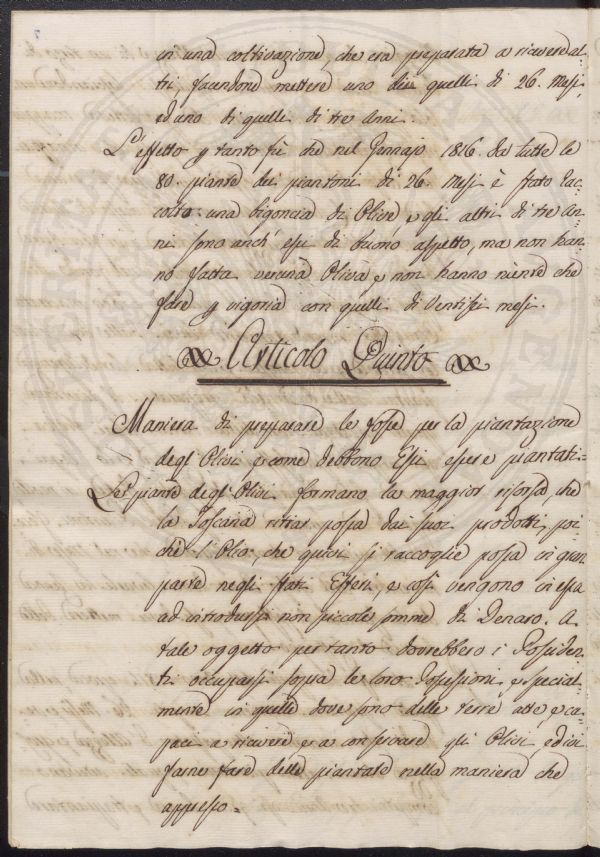 in una coltivazione, che era preparata a ricevere al-
tri, facendone mettere uno di quelli di 26. Mesi,
ed uno di quelli di tre Anni.
L'effetto p tanto fù che nel Gennajo 1816. da tutte le
80. piante dei piantoni di 26. Mesi è stato rac-
colto una bigoncia di Olive, e gli altri di tre An-
ni sono anch' essi di buono aspetto, ma non han-
no fatta veruna Oliva, e non hanno niente che
fare p vigoria con quelli di Ventisei mesi.
Articolo Quinto
Maniera di preparare le fosse per la piantazione
degl' Olivi e come debbono Essi essere piantati.
Le piante degl' Olivi formano la maggior risorsa che
la Toscana ritrar possa dai suoi prodotti, poi-
chè l' Olio, che quivi si raccoglie passa in gran
parte negli Stati Esteri, e così vengono in essa
ad introdursi non piccole somme di Denaro. A
tale oggetto per tanto dovrebbero i Possiden-
ti occuparsi sopra le loro Possessioni, e special-
mente in quelle dove sono delle terre atte, e ca-
paci a ricevere, e a conservare gli Olivi, e di
farne fare delle piantate nella maniera che
appresso.